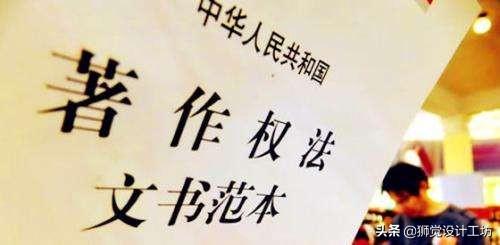 中华人民共和国
著作权法
文书范本
头条 @狮觉设计工坊